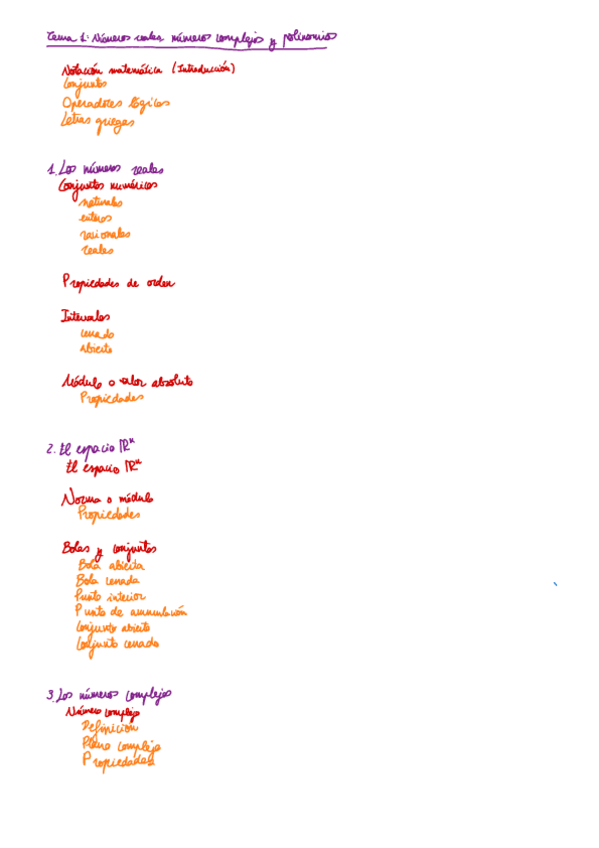 Tema 1: Números reales números complejos y polinomios
Notación matemática (Introducción)
Conjuntos
Operadores lógicos
Letras griegas
1. Los números reales
Conjuntos numéricos
naturales
enteros
racionales
reales
Propiedades de orden
Intervalos
cerrado
abierto
Módulo o valor absoluto
Propiedades
2. El espacio ℝⁿ
El espacio ℝⁿ
Norma o módulo
Propiedades
Bolas y conjuntos
Bola abierta
Bola cerrada
Punto interior
Punto de acumulación
Conjunto abierto
Conjunto cerrado
3. Los números complejos
Número complejo
Definición
Plano complejo
Propiedades